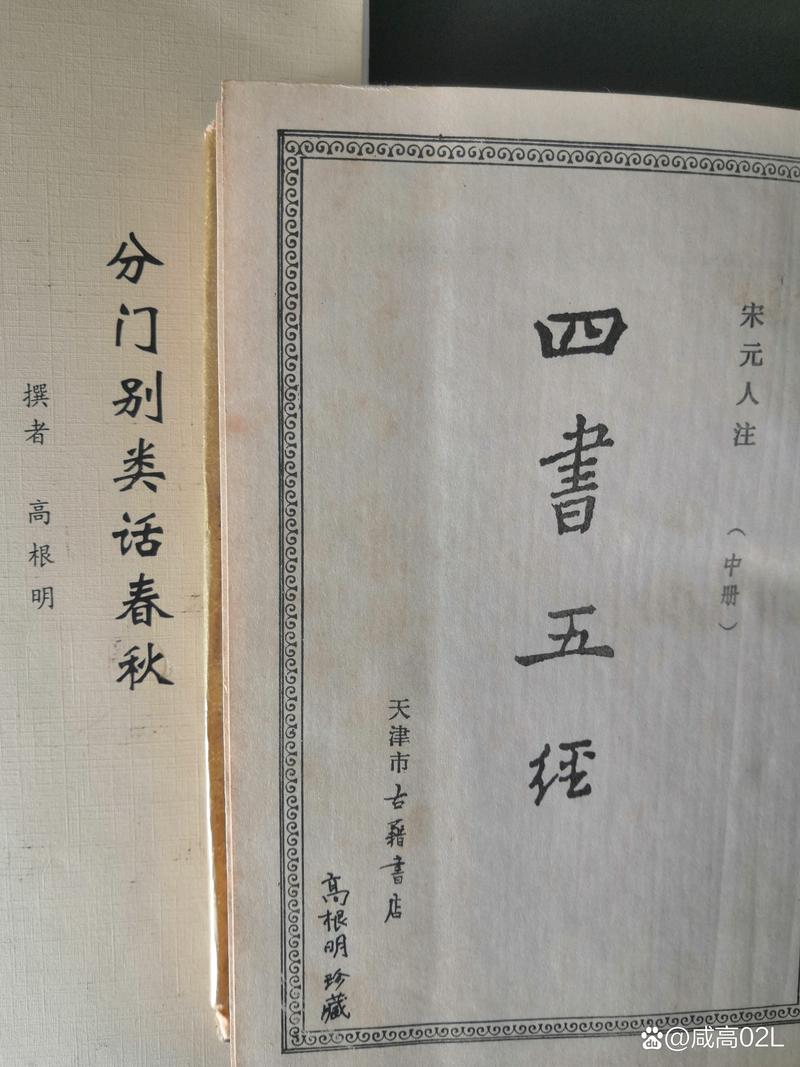 分门别类话春秋
撰者 高根明
宋元人注 (中册)
四書五經
天津市古籍書店
高根明珍藏
@咸高02L